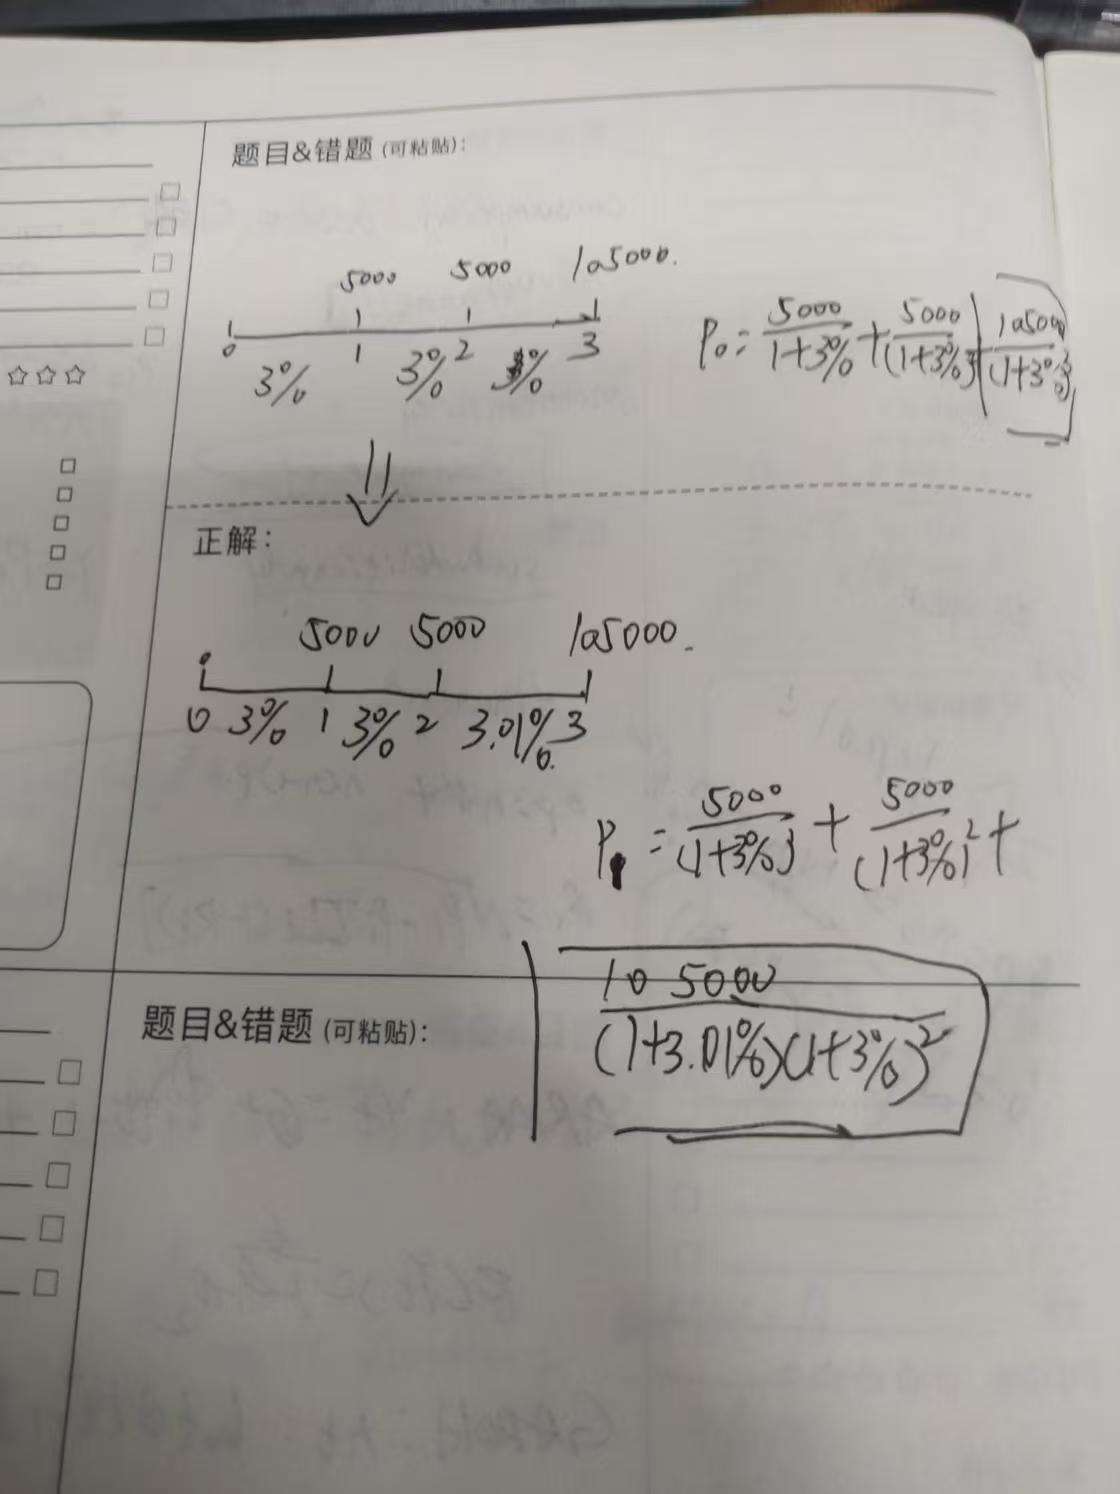 题目&错题 (可粘贴):
5000 5000 105000.
0 1 2 3
3% 3% 3%
P₀ = 5000/(1+3%) + 5000/(1+3%)² + 105000/(1+3%)³
正解:
5000 5000 105000.
0 3% 1 3% 2 3.01% 3
P₁ = 5000/(1+3%) + 5000/(1+3%)² +
105000/(1+3.01%)(1+3%)²
题目&错题 (可粘贴):